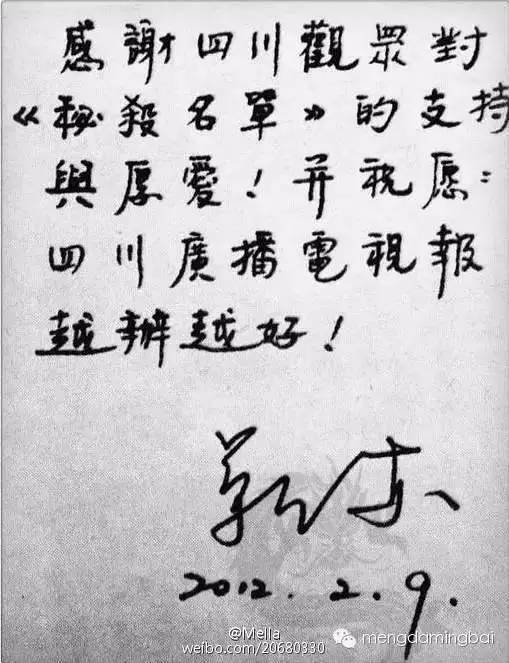 感謝四川觀眾對
《秘殺名單》的支持
與厚愛！并祝愿：
四川廣播電視報
越辦越好！
靳东
2012.2.9.
@Mella
weibo.com/20680330
mengdamingbai